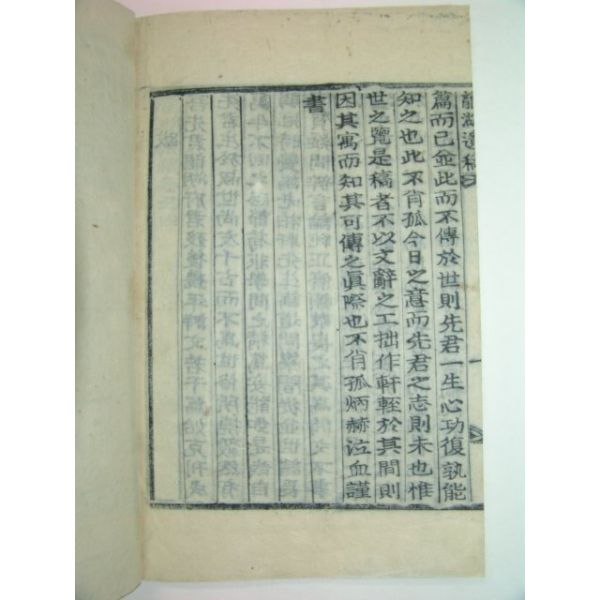 龍湖遺稿
篇而已並此而不傳於世則先君一生心功復孰能
知之也此不肖孤今日之意而先君之志則未也惟
世之覽是稿者不以文辭之工拙作軒輊於其間則
因其寓而知其可傳之眞際也不肖孤炳赫泣血謹
書